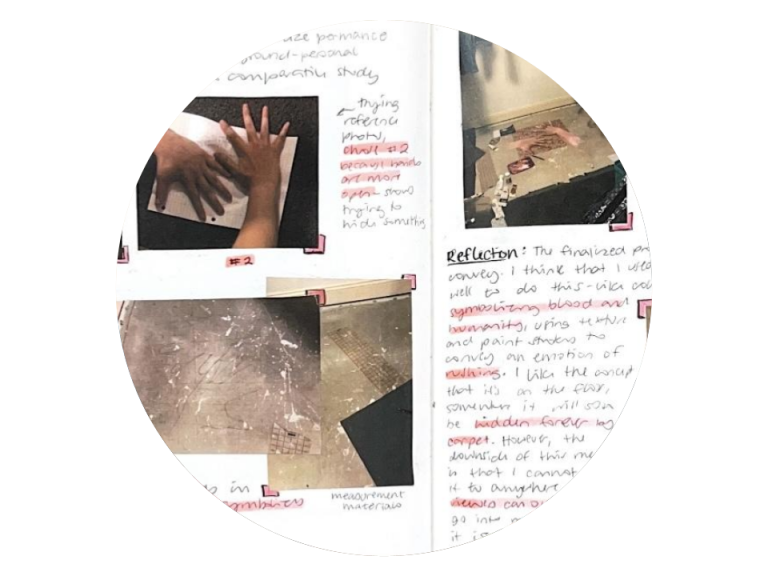 permance
ground-personal
comparative study
trying
reference
photo,
chose #2
because hands
are more
open-
trying to
hide something
#2
in
measurement
materials
Reflection: The finalized
convey. I think that I used
well to do this-like
symbolizing blood and
humanity, using texture
and paint strokes to
convey an emotion of
rushing. I like the concept
that it's on the floor,
somewhere it will soon
be hidden forever by
carpet. However, the
downside of this
is that I cannot
it to anywhere
can
go into
it is